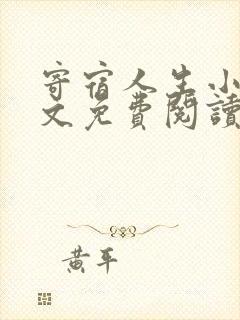 寄宿人生小
文免費閱讀
黃平